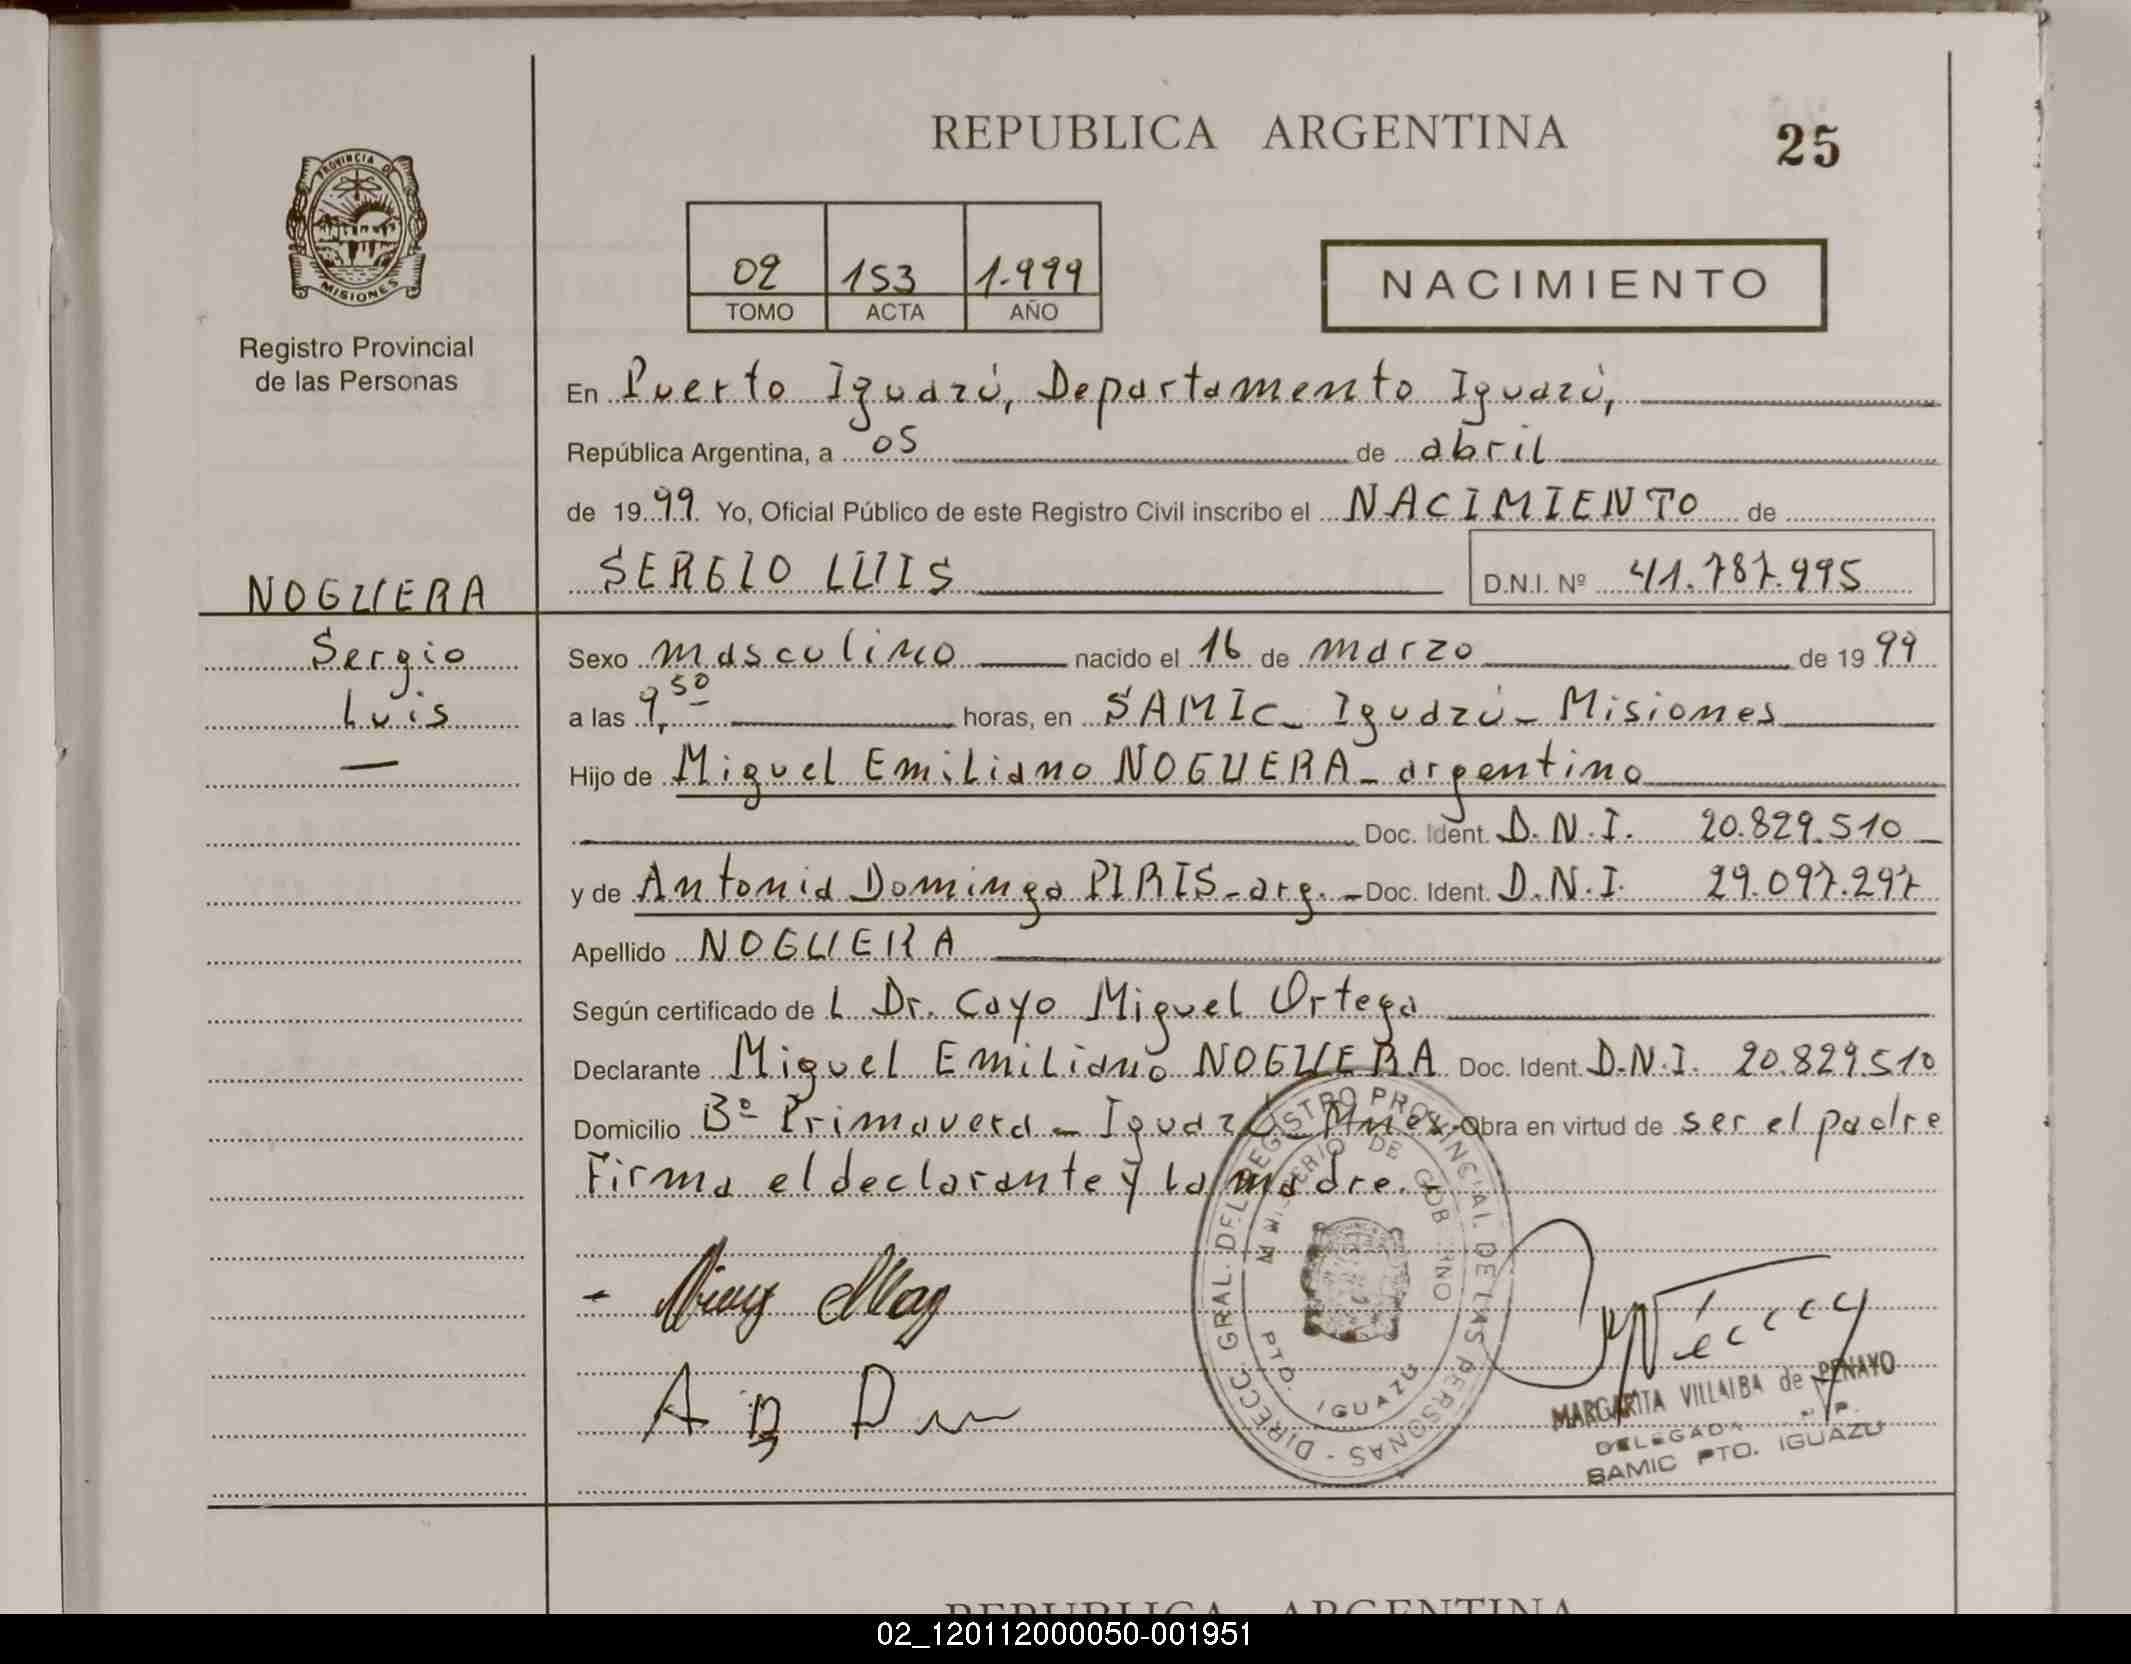 REPUBLICA ARGENTINA
25
PROVINCIA DE
MISIONES
Registro Provincial
de las Personas
02 153 1.999
TOMO ACTA AÑO
NACIMIENTO
En Puerto Iguazú, Departamento Iguazú,
República Argentina, a 05 de abril
de 1999 Yo, Oficial Público de este Registro Civil inscribo el NACIMIENTO de
SERGIO LUIS D.N.I. Nº 41.787.995
NOGUERA
Sergio
Luis
Sexo masculino nacido el 16 de marzo de 1999
a las 9,50 horas, en SAMIC - Iguazú - Misiones
Hijo de Miguel Emiliano NOGUERA - argentino
Doc. Ident. D.N.I. 20.829.510
y de Antonia Dominga PIRIS - arg. - Doc. Ident. D.N.I. 29.097.297
Apellido NOGUERA
Según certificado de L Dr. Cayo Miguel Ortega
Declarante Miguel Emiliano NOGUERA Doc. Ident. D.N.I. 20.829.510
Domicilio Bº Primavera - Iguazú - Mnes. Obra en virtud de ser el padre
Firma el declarante y la madre.
DIRECC. GRAL. DEL REGISTRO PROVINCIAL DE LAS PERSONAS -
MINISTERIO DE GOBIERNO
PTO. IGUAZU
MARGARITA VILLALBA de PENAYO
DELEGADA
SAMIC PTO. IGUAZU
REPUBLICA ARGENTINA
02_120112000050-001951